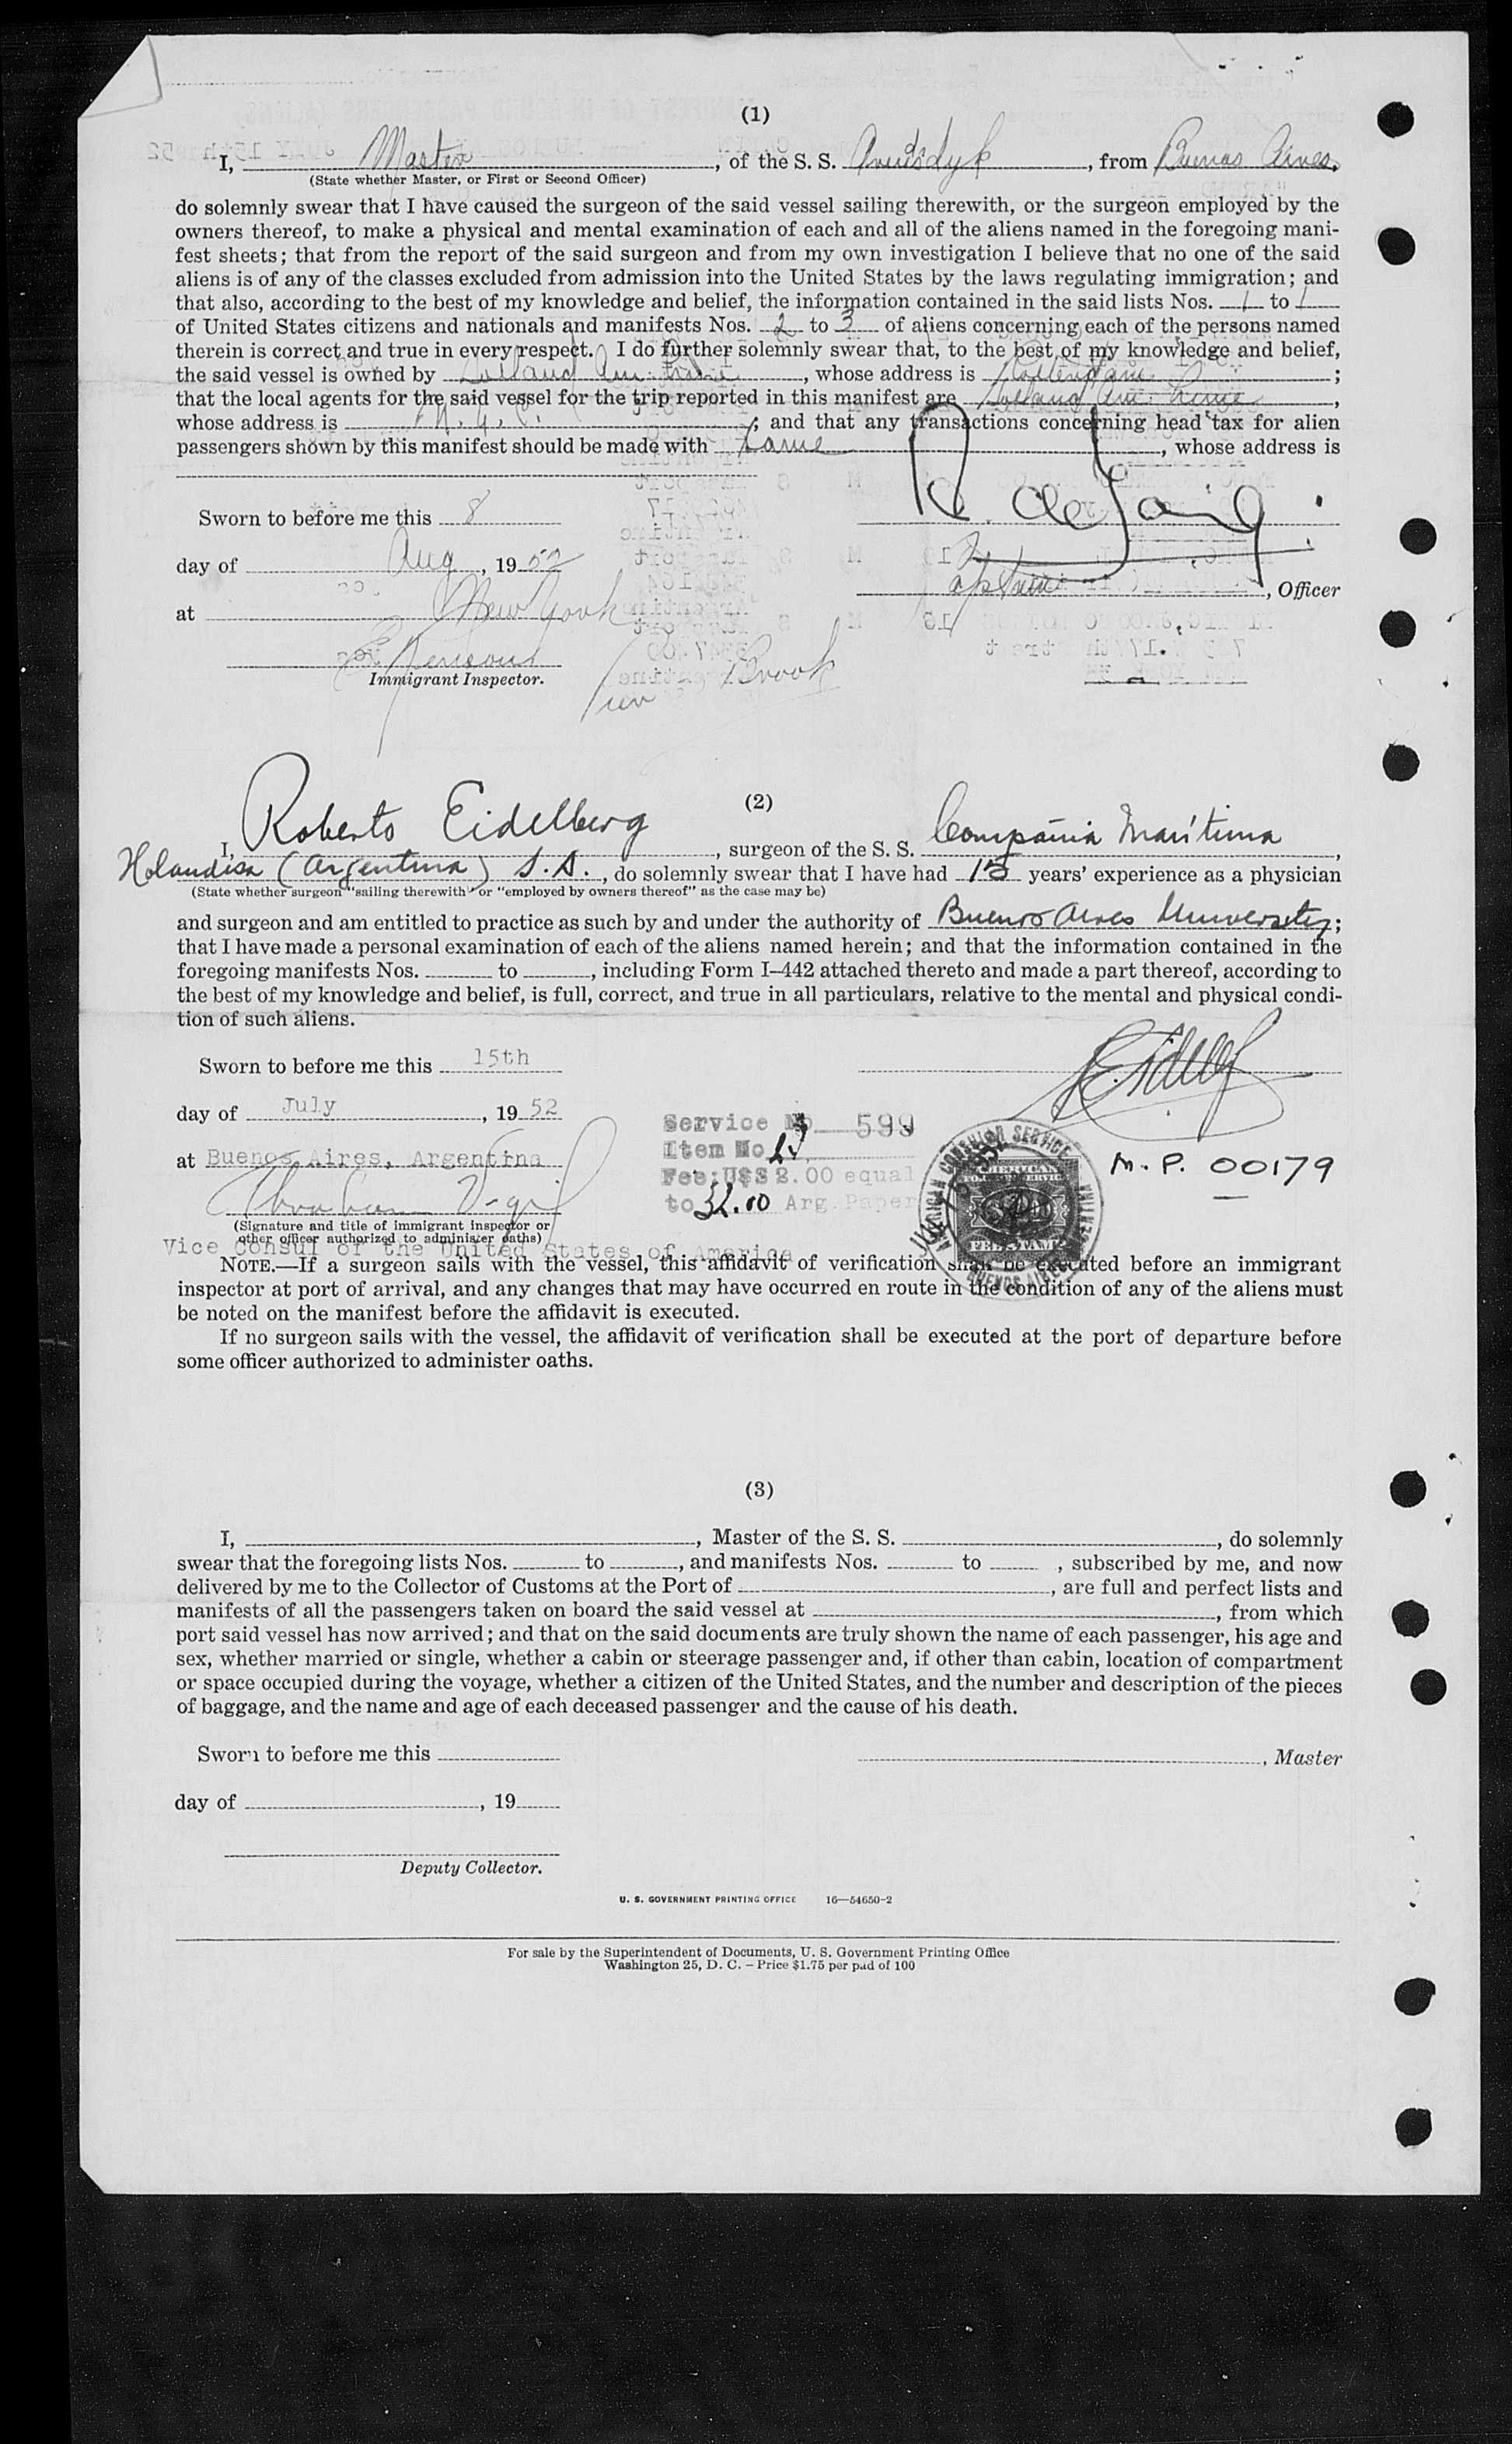 (1)
I, Master, of the S. S. , from Buenos Aires,
(State whether Master, or First or Second Officer)
do solemnly swear that I have caused the surgeon of the said vessel sailing therewith, or the surgeon employed by the
owners thereof, to make a physical and mental examination of each and all of the aliens named in the foregoing mani-
fest sheets; that from the report of the said surgeon and from my own investigation I believe that no one of the said
aliens is of any of the classes excluded from admission into the United States by the laws regulating immigration; and
that also, according to the best of my knowledge and belief, the information contained in the said lists Nos. 1 to 1
of United States citizens and nationals and manifests Nos. 2 to 3 of aliens concerning each of the persons named
therein is correct and true in every respect. I do further solemnly swear that, to the best of my knowledge and belief,
the said vessel is owned by Holland Am. Line, whose address is Rotterdam;
that the local agents for the said vessel for the trip reported in this manifest are Holland Am. Line,
whose address is N. Y. C.; and that any transactions concerning head tax for alien
passengers shown by this manifest should be made with same, whose address is
Sworn to before me this 8
day of Aug, 1952
Captain, Officer
at New York
Immigrant Inspector.
Brook
(2)
I, Roberto Eidelberg, surgeon of the S. S. Compañia Marítima
Holandesa (Argentina) S.A., do solemnly swear that I have had 15 years' experience as a physician
(State whether surgeon "sailing therewith" or "employed by owners thereof" as the case may be)
and surgeon and am entitled to practice as such by and under the authority of Buenos Aires University;
that I have made a personal examination of each of the aliens named herein; and that the information contained in the
foregoing manifests Nos. to , including Form I-442 attached thereto and made a part thereof, according to
the best of my knowledge and belief, is full, correct, and true in all particulars, relative to the mental and physical condi-
tion of such aliens.
Sworn to before me this 15th
day of July, 1952
Service No 599
at Buenos Aires, Argentina
Item No 23
M. P. 00179
Fee: U$S 2.00 equal
to 32.00 Arg. Paper
AMERICAN FOREIGN SERVICE
FEE STAMP
BUENOS AIRES
ARGENTINA
(Signature and title of immigrant inspector or
other officer authorized to administer oaths)
Vice Consul of the United States of America
NOTE.—If a surgeon sails with the vessel, this affidavit of verification shall be executed before an immigrant
inspector at port of arrival, and any changes that may have occurred en route in the condition of any of the aliens must
be noted on the manifest before the affidavit is executed.
If no surgeon sails with the vessel, the affidavit of verification shall be executed at the port of departure before
some officer authorized to administer oaths.
(3)
I, , Master of the S. S. , do solemnly
swear that the foregoing lists Nos. to , and manifests Nos. to , subscribed by me, and now
delivered by me to the Collector of Customs at the Port of , are full and perfect lists and
manifests of all the passengers taken on board the said vessel at , from which
port said vessel has now arrived; and that on the said documents are truly shown the name of each passenger, his age and
sex, whether married or single, whether a cabin or steerage passenger and, if other than cabin, location of compartment
or space occupied during the voyage, whether a citizen of the United States, and the number and description of the pieces
of baggage, and the name and age of each deceased passenger and the cause of his death.
Sworn to before me this
, Master
day of , 19
Deputy Collector.
U. S. GOVERNMENT PRINTING OFFICE 16—54650-2
For sale by the Superintendent of Documents, U. S. Government Printing Office
Washington 25, D. C. - Price $1.75 per pad of 100